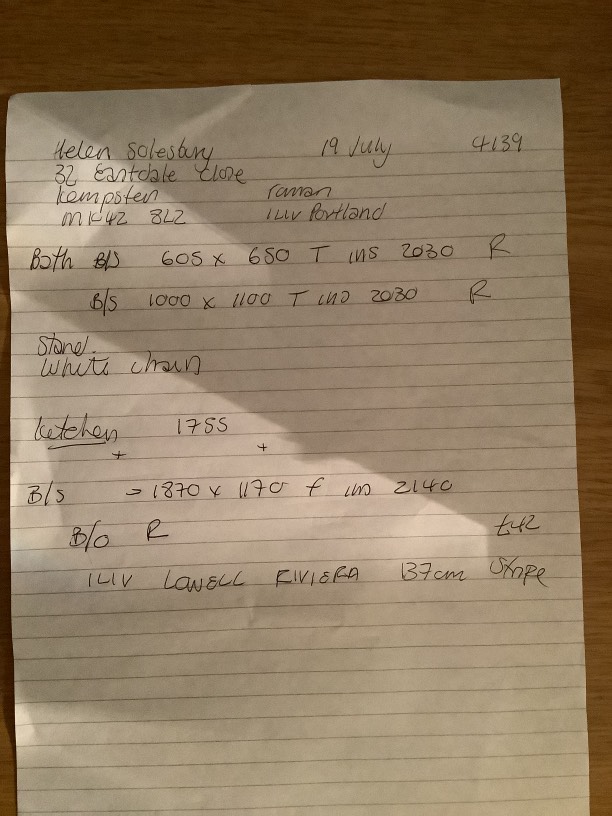 Helen Solesbury 19 July 4139
32 Eastdale Close
Kempsten roman
MK42 8LZ iliv Portland
Both B/S 605 x 650 T ins 2030 R
B/S 1000 x 1100 T ins 2030 R
Stand.
White chain
Kitchen 1755
+ +
B/S → 1870 x 1170 f ins 2140
B/O R
ILIV LOWELL RIVIERA 137cm Stripe